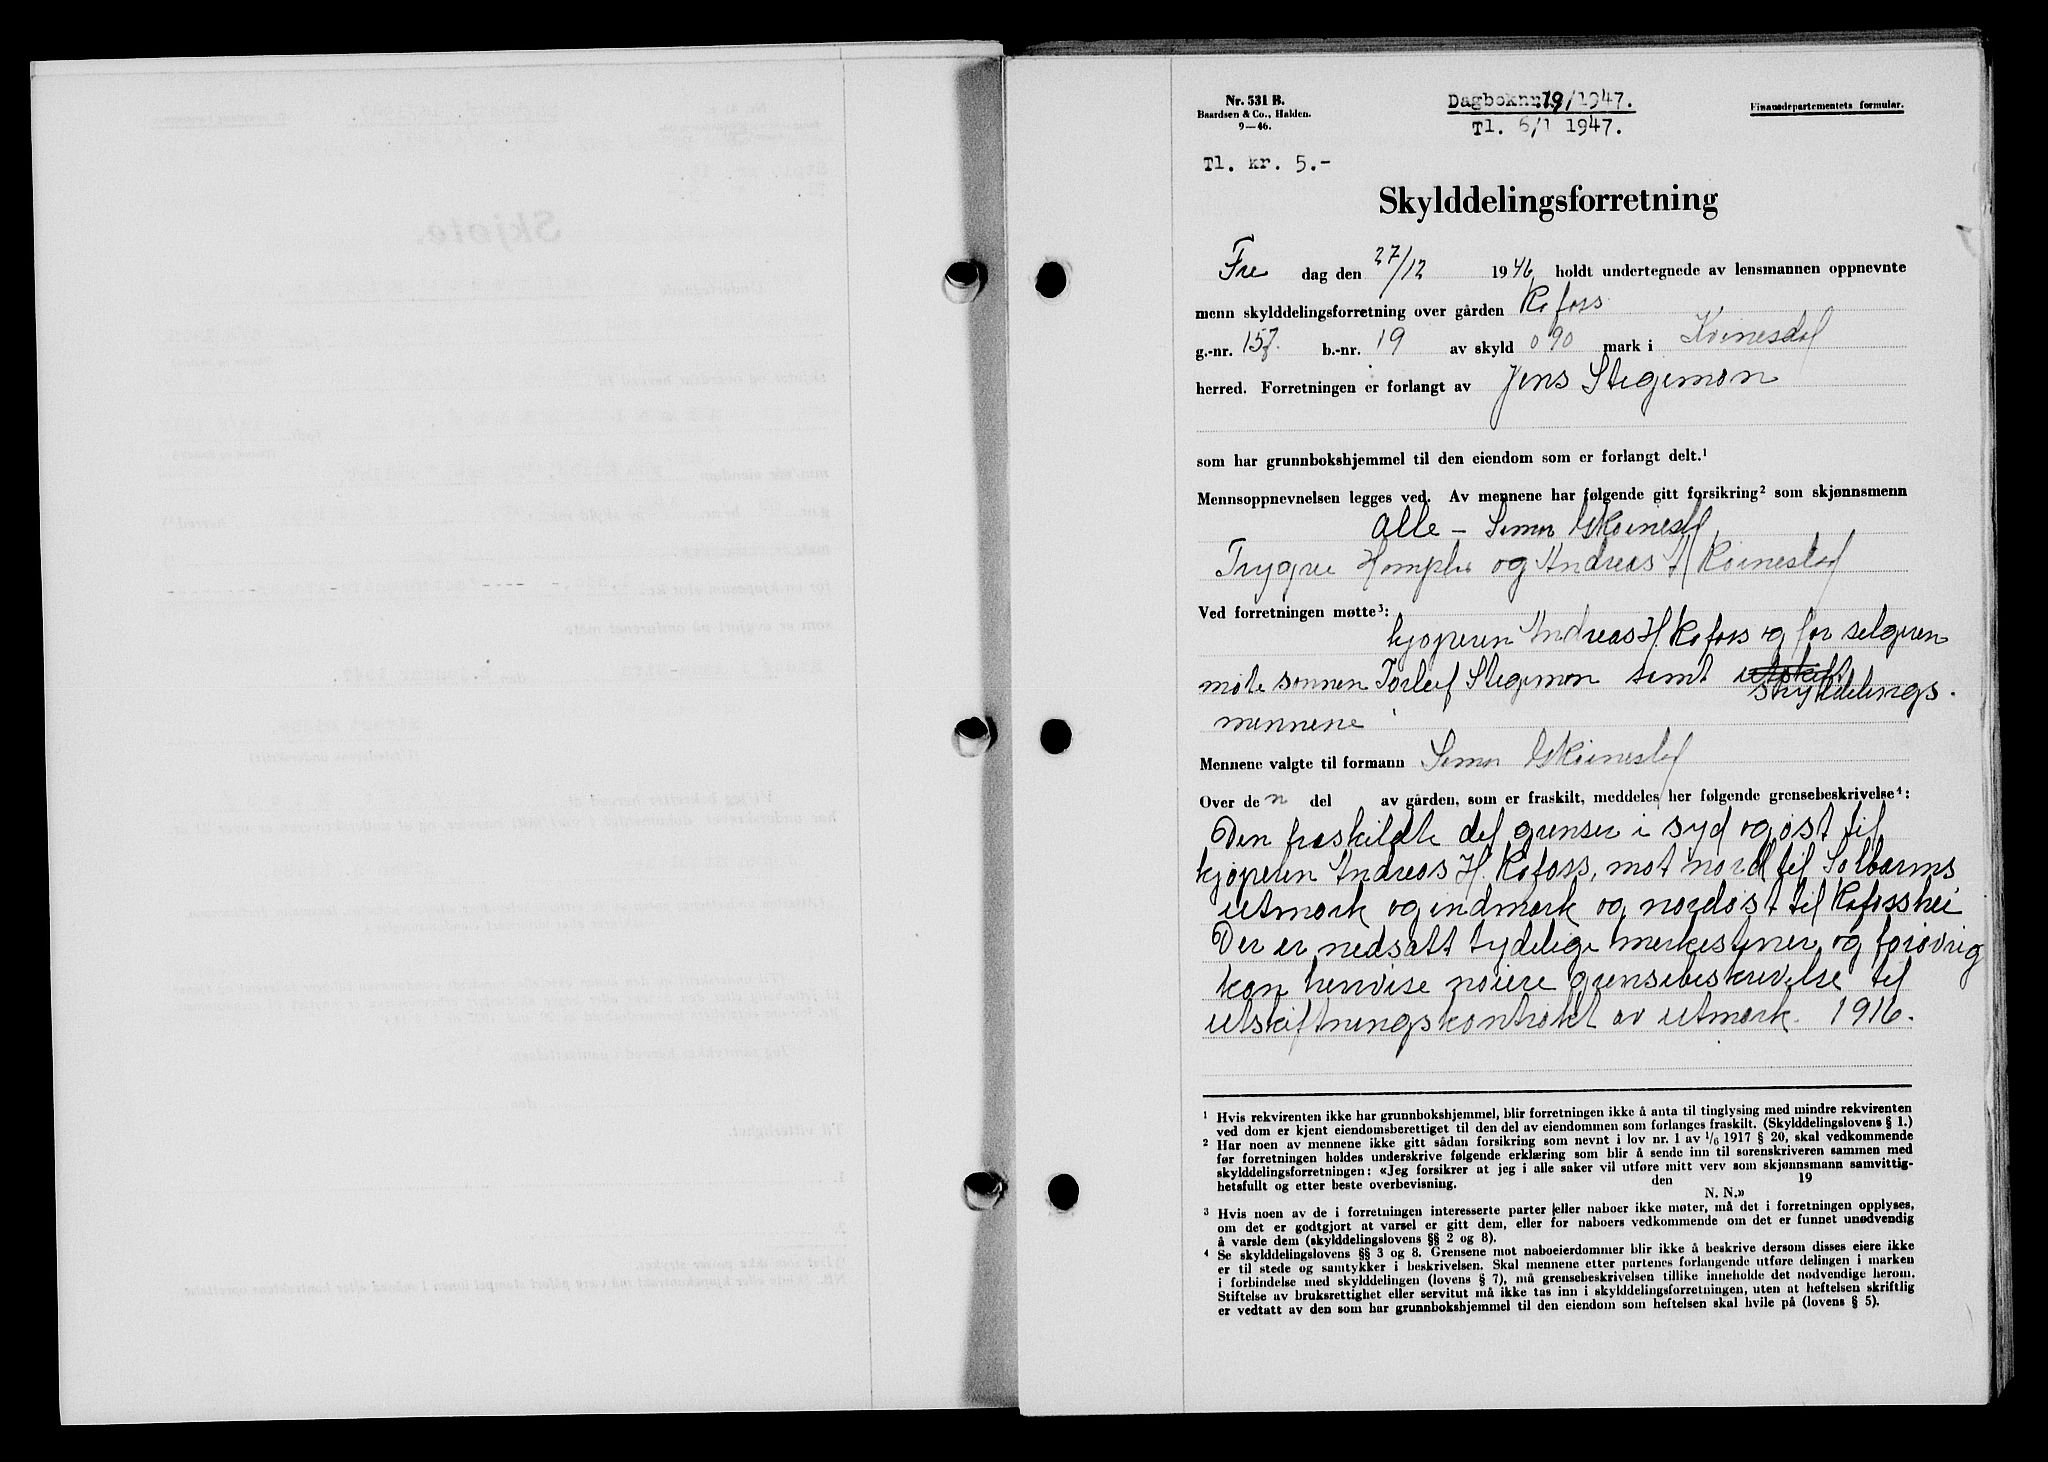 Nr. 531 B.
Baardsen & Co., Halden.
9—46.
Dagboknr. 19/1947.
Tl. 6/1 1947.
Finansdepartementets formular.
Tl. kr. 5.-
Skylddelingsforretning
Fre dag den 27/12 1946 holdt undertegnede av lensmannen oppnevnte
menn skylddelingsforretning over gården Rafoss
g.-nr. 157. b.-nr. 19 av skyld 0 90 mark i Kvinesdal
herred. Forretningen er forlangt av Jens Stegemon
som har grunnbokshjemmel til den eiendom som er forlangt delt.¹
Mennsoppnevnelsen legges ved. Av mennene har følgende gitt forsikring² som skjønnsmenn
alle — Simon Kvinesdal
Trygve og Andreas Kvinesdal
Ved forretningen møtte³:
kjøperen Andreas H. Rafoss og for selgeren
møte sønnen Torleif Stegemon samt utskift skylddelings-
mennene
Mennene valgte til formann Simon Kvinesdal
Over de n del av gården, som er fraskilt, meddeles her følgende grensebeskrivelse⁴:
Den fraskildte del grenser i syd og øst til
kjøperen Andreas H. Rafoss, mot nord til Solbarms
utmark og indmark og nordøst til Rafosshei
Der er nedsatt tydelige merkestener og forøvrig
kan henvise nøiere grensebeskrivelse til
utskiftningskontrakt av utmark 1916.
¹ Hvis rekvirenten ikke har grunnbokshjemmel, blir forretningen ikke å anta til tinglysing med mindre rekvirenten
ved dom er kjent eiendomsberettiget til den del av eiendommen som forlanges fraskilt. (Skylddelingslovens § 1.)
² Har noen av mennene ikke gitt sådan forsikring som nevnt i lov nr. 1 av 1/6 1917 § 20, skal vedkommende
før forretningen holdes underskrive følgende erklæring som blir å sende inn til sorenskriveren sammen med
skylddelingsforretningen: «Jeg forsikrer at jeg i alle saker vil utføre mitt verv som skjønnsmann samvittig-
hetsfullt og etter beste overbevisning. den 19
N. N.»
³ Hvis noen av de i forretningen interesserte parter eller naboer ikke møter, må det i forretningen opplyses,
om det er godtgjort at varsel er gitt dem, eller for naboers vedkommende om det er funnet unødvendig
å varsle dem (skylddelingslovens §§ 2 og 8).
⁴ Se skylddelingslovens §§ 3 og 8. Grensene mot naboeierdommer blir ikke å beskrive dersom disses eiere ikke
er til stede og samtykker i beskrivelsen. Skal mennene etter partenes forlangende utføre delingen i marken
i forbindelse med skylddelingen (lovens § 7), må grensebeskrivelsen tillike inneholde det nødvendige herom.
Stiftelse av bruksrettighet eller servitut må ikke tas inn i skylddelingsforretningen, uten at heftelsen skriftlig
er vedtatt av den som har grunnbokshjemmel til den eiendom som heftelsen skal hvile på (lovens § 5).